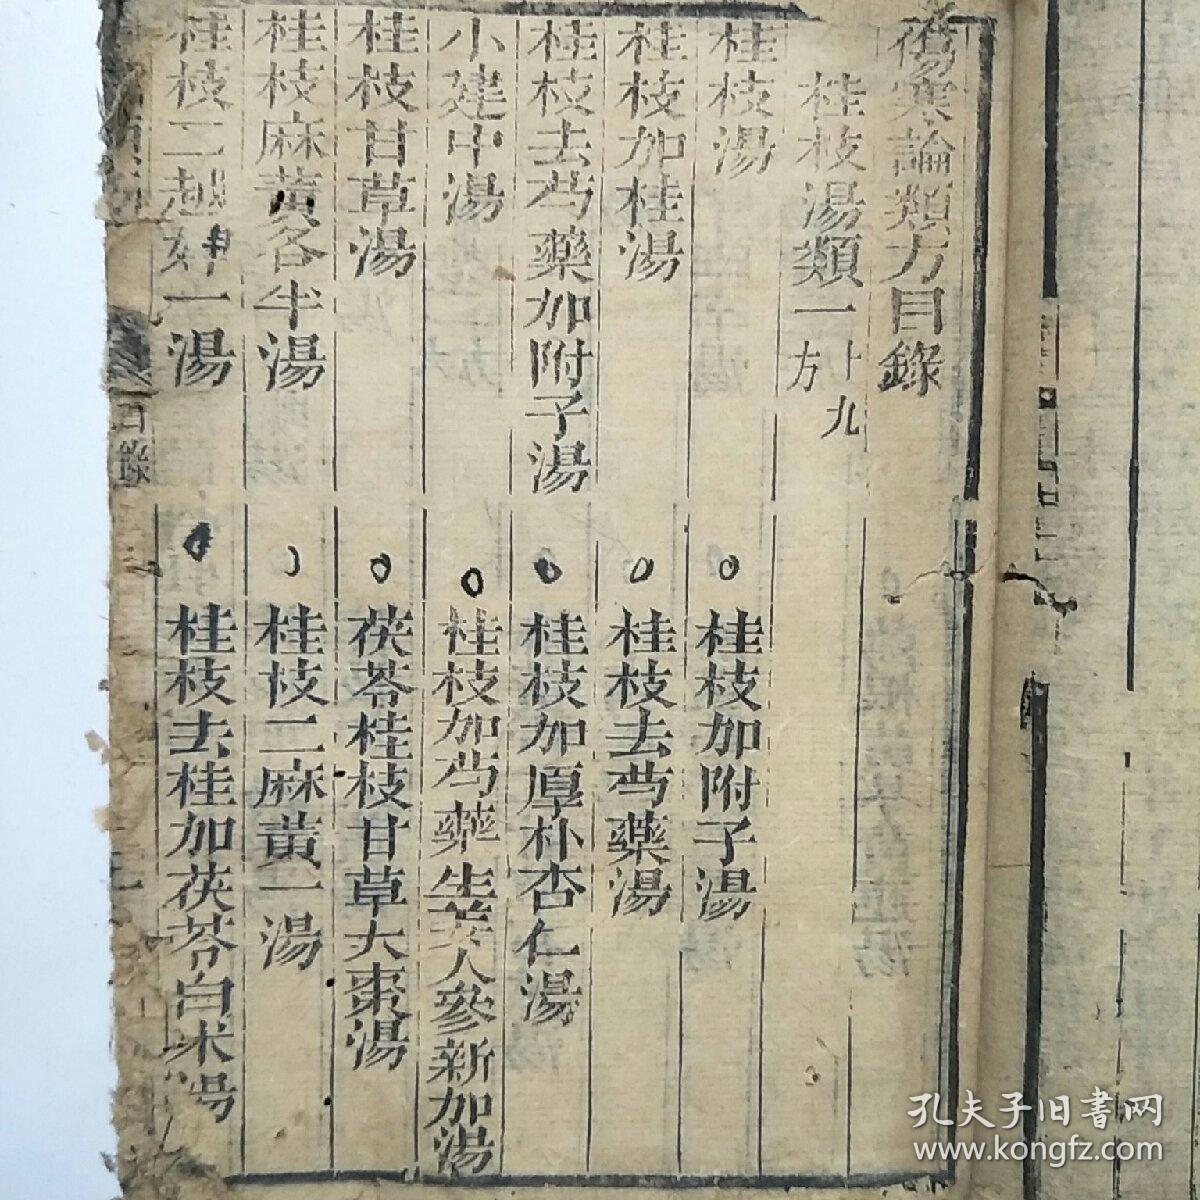 傷寒論類方目錄
桂枝湯類一 十九方
桂枝湯 桂枝加附子湯
桂枝加桂湯 桂枝去芍藥湯
桂枝去芍藥加附子湯 桂枝加厚朴杏仁湯
小建中湯 桂枝加芍藥生姜人參新加湯
桂枝甘草湯 茯苓桂枝甘草大棗湯
桂枝麻黃各半湯 桂枝二麻黃一湯
桂枝二越婢一湯 桂枝去桂加茯苓白朮湯
目錄
孔夫子旧書网
www.kongfz.com